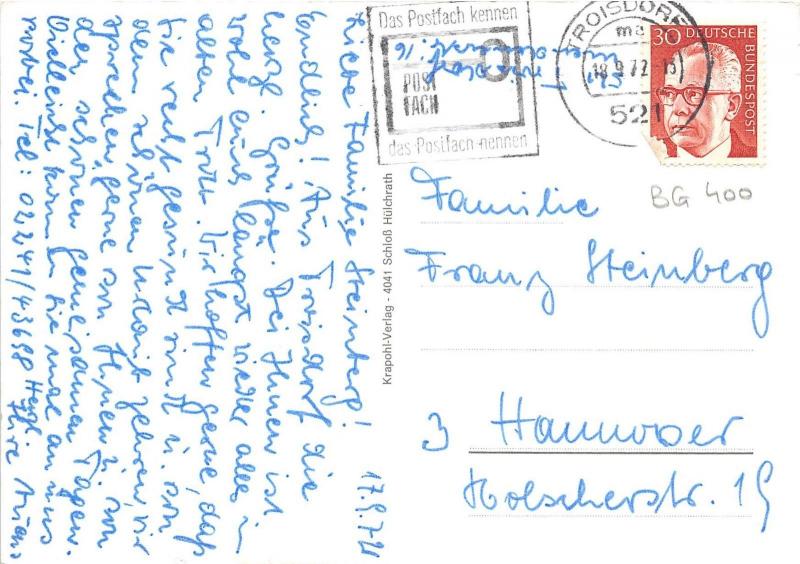 17.9.72
Liebe Familie Steinberg!
Endlich! Aus Troisdorf die
herzl. Grüße. Bei Ihnen ist
wohl auch längst wieder alles im
alten Trott. Wir hoffen gerne, daß
Sie recht gesund sind u. von
dem schönen Urlaub zehren, wir
sprechen gerne von Ihnen u. von
den schönen gemeinsamen Tagen.
Vielleicht kommen Sie mal an uns
vorbei. Tel: 02241/43698 Herzl.
Ihre
Das Postfach kennen
POST
FACH
das Postfach nennen
TROISDORF
ma
18.9.72
521
30 DEUTSCHE
BUNDESPOST
BG 400
Krapohl-Verlag - 4041 Schloß Hülchrath
Familie
Franz Steinberg
3 Hannover
Holscherstr. 19